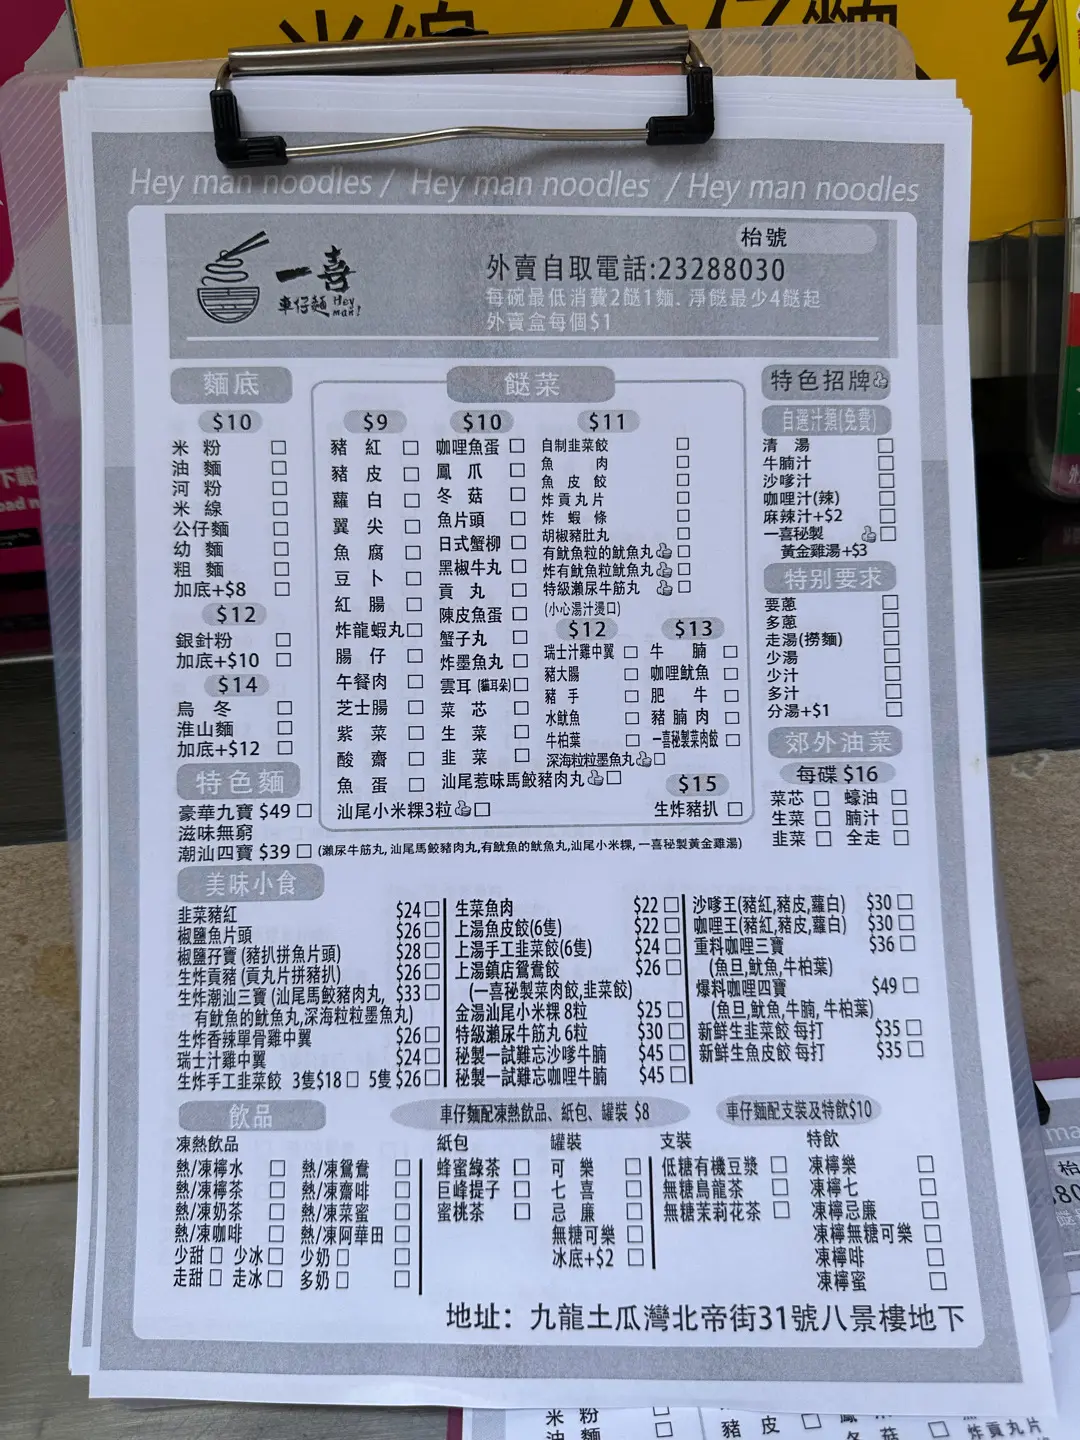 Hey man noodles / Hey man noodles / Hey man noodles
枱號
一喜
車仔麵 Hey man!
外賣自取電話:23288030
每碗最低消費2餸1麵. 淨餸最少4餸起
外賣盒每個$1
麵底
$10
米粉 □
油麵 □
河粉 □
米線 □
公仔麵 □
幼麵 □
粗麵 □
加底+$8 □
$12
銀針粉 □
加底+$10 □
$14
烏冬 □
淮山麵 □
加底+$12 □
特色麵
豪華九寶 $49 □
滋味無窮
潮汕四寶 $39 □ (瀨尿牛筋丸, 汕尾馬鮫豬肉丸,有魷魚的魷魚丸,汕尾小米粿, 一喜秘製黃金雞湯)
餸菜
$9
豬紅 □
豬皮 □
蘿白 □
翼尖 □
魚腐 □
豆卜 □
紅腸 □
炸龍蝦丸 □
腸仔 □
午餐肉 □
芝士腸 □
紫菜 □
酸齋 □
魚蛋 □
汕尾小米粿3粒 □
$10
咖哩魚蛋 □
鳳爪 □
冬菇 □
魚片頭 □
日式蟹柳 □
黑椒牛丸 □
貢丸 □
陳皮魚蛋 □
蟹子丸 □
炸墨魚丸 □
雲耳(貓耳朵) □
菜芯 □
生菜 □
韭菜 □
汕尾惹味馬鮫豬肉丸 □
$11
自制韭菜餃 □
魚肉 □
魚皮餃 □
炸貢丸片 □
炸蝦條 □
胡椒豬肚丸 □
有魷魚粒的魷魚丸 □
炸有魷魚粒魷魚丸 □
特級瀨尿牛筋丸 □
(小心湯汁燙口)
$12
瑞士汁雞中翼 □
豬大腸 □
豬手 □
水魷魚 □
牛柏葉 □
深海粒粒墨魚丸 □
$13
牛腩 □
咖哩魷魚 □
肥牛 □
豬腩肉 □
一喜秘製菜肉餃 □
$15
生炸豬扒 □
特色招牌
自選汁類(免費)
清湯 □
牛腩汁 □
沙嗲汁 □
咖哩汁(辣) □
麻辣汁+$2 □
一喜秘製 □
黃金雞湯+$3
特別要求
要蔥 □
多蔥 □
走湯(撈麵) □
少湯 □
少汁 □
多汁 □
分湯+$1 □
郊外油菜
每碟 $16
菜芯 □ 蠔油 □
生菜 □ 腩汁 □
韭菜 □ 全走 □
美味小食
韭菜豬紅 $24 □
椒鹽魚片頭 $26 □
椒鹽孖寶 (豬扒拼魚片頭) $28 □
生炸貢豬 (貢丸片拼豬扒) $26 □
生炸潮汕三寶 (汕尾馬鮫豬肉丸, $33 □
有魷魚的魷魚丸,深海粒粒墨魚丸)
生炸香辣單骨雞中翼 $26 □
瑞士汁雞中翼 $24 □
生炸手工韭菜餃 3隻$18 □ 5隻 $26 □
生菜魚肉 $22 □
上湯魚皮餃(6隻) $22 □
上湯手工韭菜餃(6隻) $24 □
上湯鎮店鴛鴦餃 $26 □
(一喜秘製菜肉餃,韭菜餃)
金湯汕尾小米粿 8粒 $25 □
特級瀨尿牛筋丸 6粒 $30 □
秘製一試難忘沙嗲牛腩 $45 □
秘製一試難忘咖哩牛腩 $45 □
沙嗲王(豬紅,豬皮,蘿白) $30 □
咖哩王(豬紅,豬皮,蘿白) $30 □
重料咖哩三寶 $36 □
(魚旦,魷魚,牛柏葉)
爆料咖哩四寶 $49 □
(魚旦,魷魚,牛腩, 牛柏葉)
新鮮生韭菜餃 每打 $35 □
新鮮生魚皮餃 每打 $35 □
飲品
車仔麵配凍熱飲品、紙包、罐裝 $8
車仔麵配支裝及特飲$10
凍熱飲品
熱/凍檸水 □ 熱/凍鴛鴦 □
熱/凍檸茶 □ 熱/凍齋啡 □
熱/凍奶茶 □ 熱/凍菜蜜 □
熱/凍咖啡 □ 熱/凍阿華田 □
少甜 □ 少冰 □ 少奶 □ □
走甜 □ 走冰 □ 多奶 □ □
紙包
蜂蜜綠茶 □
巨峰提子 □
蜜桃茶 □
罐裝
可樂 □
七喜 □
忌廉 □
無糖可樂 □
冰底+$2 □
支裝
低糖有機豆漿 □
無糖烏龍茶 □
無糖茉莉花茶 □
特飲
凍檸樂 □
凍檸七 □
凍檸忌廉 □
凍檸無糖可樂 □
凍檸啡 □
凍檸蜜 □
地址：九龍土瓜灣北帝街31號八景樓地下
米粉 □
油麵
豬皮 □
炸貢丸片